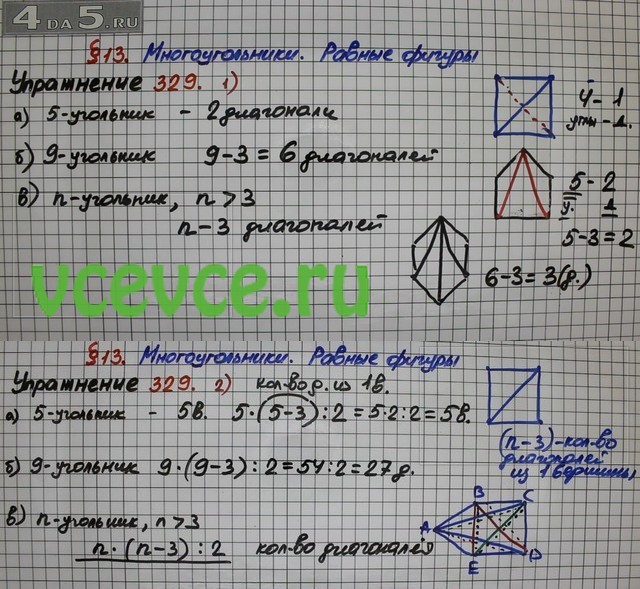 4 DA 5.RU
§13. Многоугольники. Равные фигуры
Упражнение 329. 1)
а) 5-угольник - 2 диагонали
б) 9-угольник 9-3=6 диагоналей
в) n-угольник, n>3
n-3 диагоналей
4-1
углы-д.
5-2
у. д
5-3=2
6-3=3(д.)
vcevce.ru
§13. Многоугольники. Равные фигуры
Упражнение 329. 2) кол-во д. из 1в.
а) 5-угольник - 5в. 5·(5-3):2=5·2:2=5в.
б) 9-угольник 9·(9-3):2=54:2=27д.
в) n-угольник, n>3
n·(n-3):2 кол-во диагоналей
(n-3)-кол-во
диагоналей
из 1 вершины
B C
A
E D